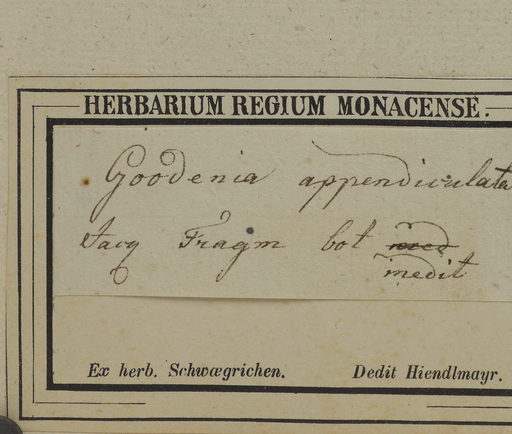 HERBARIUM REGIUM MONACENSE.
Goodenia appendiculata
Jacq Fragm bot
inedit
Ex herb. Schwægrichen. Dedit Hiendlmayr.